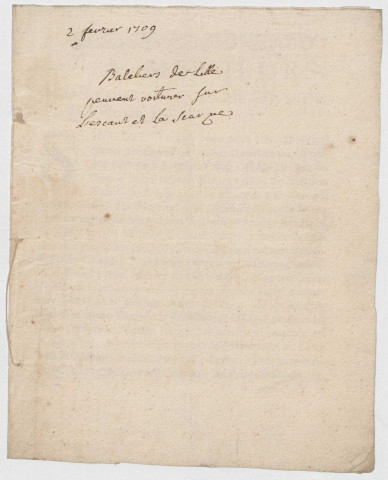 2 fevrier 1709
Bateliers de Lille
peuvent voiturer sur
L'escaut et La Scarpe